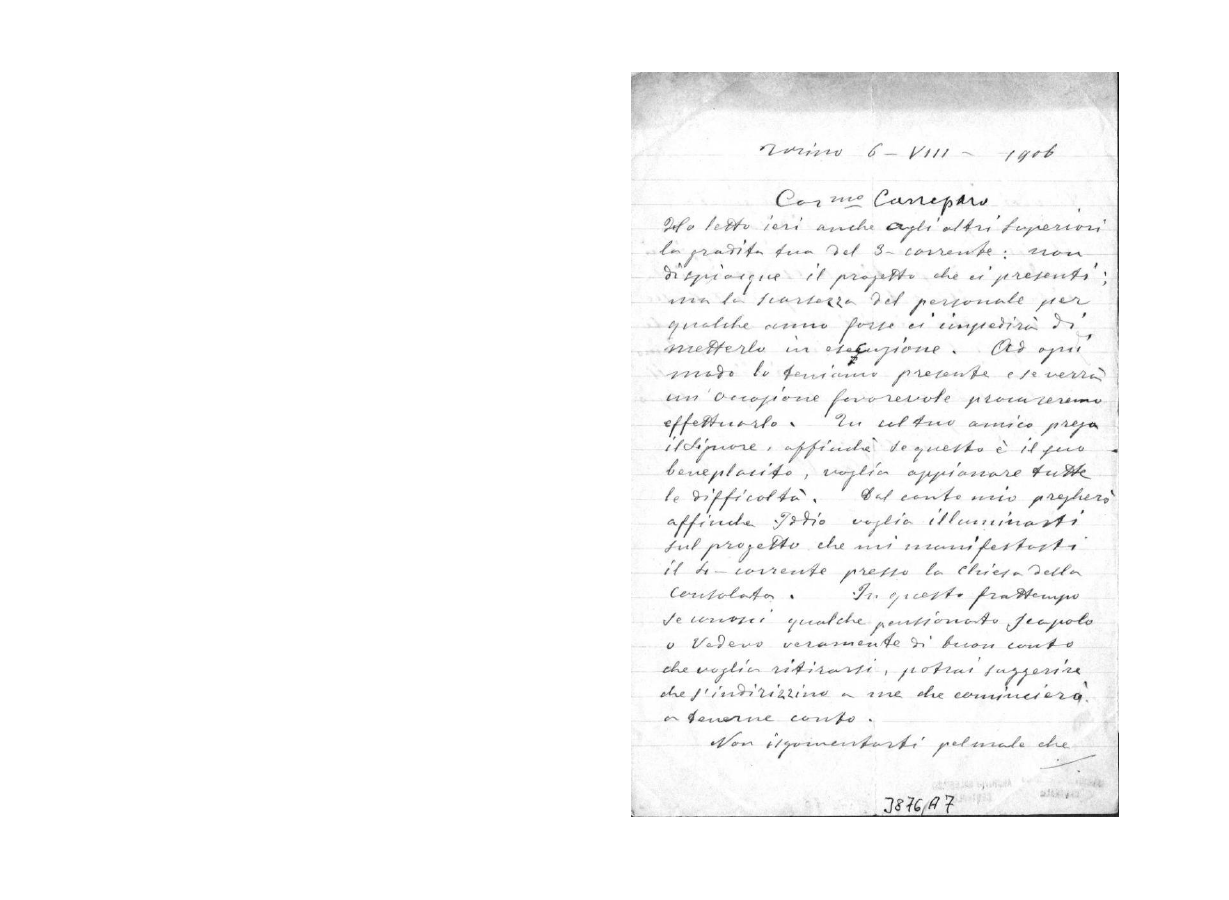 Torino 6 - VIII - 1906
Car mo Carrepero
Ho letto ieri anche agli altri Superiori
la gradita tua del 3- corrente: non
dispiacque il progetto che ci presenti;
ma la scarsezza del personale per
qualche anno forse ci impedirà di
metterlo in esecuzione. Ad ogni
modo lo teniamo presente e se verrà
un' occasione favorevole procureremo
effettuarlo. Tu col tuo amico prega
il Signore, affinchè se questo è il suo
beneplacito, voglia appianare tutte
le difficoltà. Dal canto mio pregherò
affinchè Iddio voglia illuminarti
sul progetto che mi manifestasti
il 4- corrente presso la Chiesa della
Consolata. In questo frattempo
se conosci qualche pensionato scapolo
o Vedovo veramente di buon conto
che voglia ritirarsi, potrai suggerire
che s'indirizzino a me che comincierò
a tenerne conto.
Non isgomentarti pel male che
J876/A7